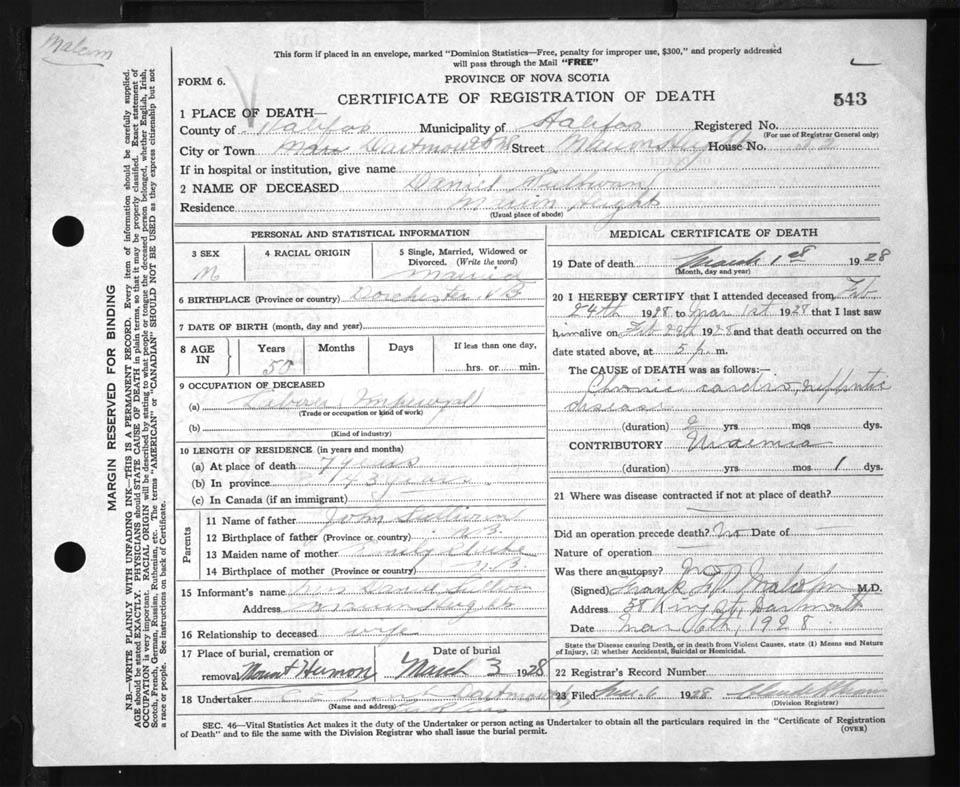 Malcom
This form if placed in an envelope, marked "Dominion Statistics—Free, penalty for improper use, $300," and properly addressed
will pass through the Mail "FREE"
FORM 6.
PROVINCE OF NOVA SCOTIA
CERTIFICATE OF REGISTRATION OF DEATH
543
1 PLACE OF DEATH—
County of Halifax Municipality of Halifax Registered No.
(For use of Registrar General only)
City or Town Dartmouth Street House No.
If in hospital or institution, give name
2 NAME OF DECEASED Daniel Sullivan
Residence Height
(Usual place of abode)
PERSONAL AND STATISTICAL INFORMATION
3 SEX M
4 RACIAL ORIGIN
5 Single, Married, Widowed or Divorced. (Write the word) Married
6 BIRTHPLACE (Province or country) Dorchester NB
7 DATE OF BIRTH (month, day and year)
8 AGE IN Years 50 Months Days If less than one day, hrs. or min.
9 OCCUPATION OF DECEASED
(a) Laborer
(Trade or occupation or kind of work)
(b)
(Kind of industry)
10 LENGTH OF RESIDENCE (in years and months)
(a) At place of death 7 years
(b) In province 43 years
(c) In Canada (if an immigrant)
Parents
11 Name of father John Sullivan
12 Birthplace of father (Province or country) N.B.
13 Maiden name of mother Emily
14 Birthplace of mother (Province or country) N.B.
15 Informant's name Mrs Daniel Sullivan
Address
16 Relationship to deceased wife
17 Place of burial, cremation or removal Mount Hermon
Date of burial March 3 1928
18 Undertaker Dartmouth
(Name and address)
MEDICAL CERTIFICATE OF DEATH
19 Date of death March 1st 1928
(Month, day and year)
20 I HEREBY CERTIFY that I attended deceased from Feb
24th 1928 to Mar 1st 1928 that I last saw
him alive on Feb 29th 1928 and that death occurred on the
date stated above, at 5 p. m.
The CAUSE of DEATH was as follows:—
Chronic cardio-nephritic
disease
(duration) 2 yrs. mos. dys.
CONTRIBUTORY Uraemia
(duration) yrs. mos. 1 dys.
21 Where was disease contracted if not at place of death?
Did an operation precede death? No Date of
Nature of operation
Was there an autopsy? No
(Signed) Frank Malcolm M.D.
Address 58 King St, Dartmouth
Date Mar 6th, 1928
State the Disease causing Death, or in death from Violent Causes, state (1) Means and Nature of Injury, (2) whether Accidental, Suicidal or Homicidal.
22 Registrar's Record Number
23 Filed Mar. 6 1928
(Division Registrar)
SEC. 46—Vital Statistics Act makes it the duty of the Undertaker or person acting as Undertaker to obtain all the particulars required in the "Certificate of Registration
of Death" and to file the same with the Division Registrar who shall issue the burial permit.
(OVER)
MARGIN RESERVED FOR BINDING
N.B.—WRITE PLAINLY WITH UNFADING INK—THIS IS A PERMANENT RECORD. Every item of information should be carefully supplied.
AGE should be stated EXACTLY. PHYSICIANS should STATE CAUSE OF DEATH in plain terms, so that it may be properly classified. Exact statement of
OCCUPATION is very important. RACIAL ORIGIN will be described by stating to what people or tongue the deceased person belonged, whether English, Irish,
Scotch, French, German, Russian, Ruthenian, etc. The terms "AMERICAN" or "CANADIAN" SHOULD NOT BE USED as they express citizenship but not
a race or people. See instructions on back of Certificate.